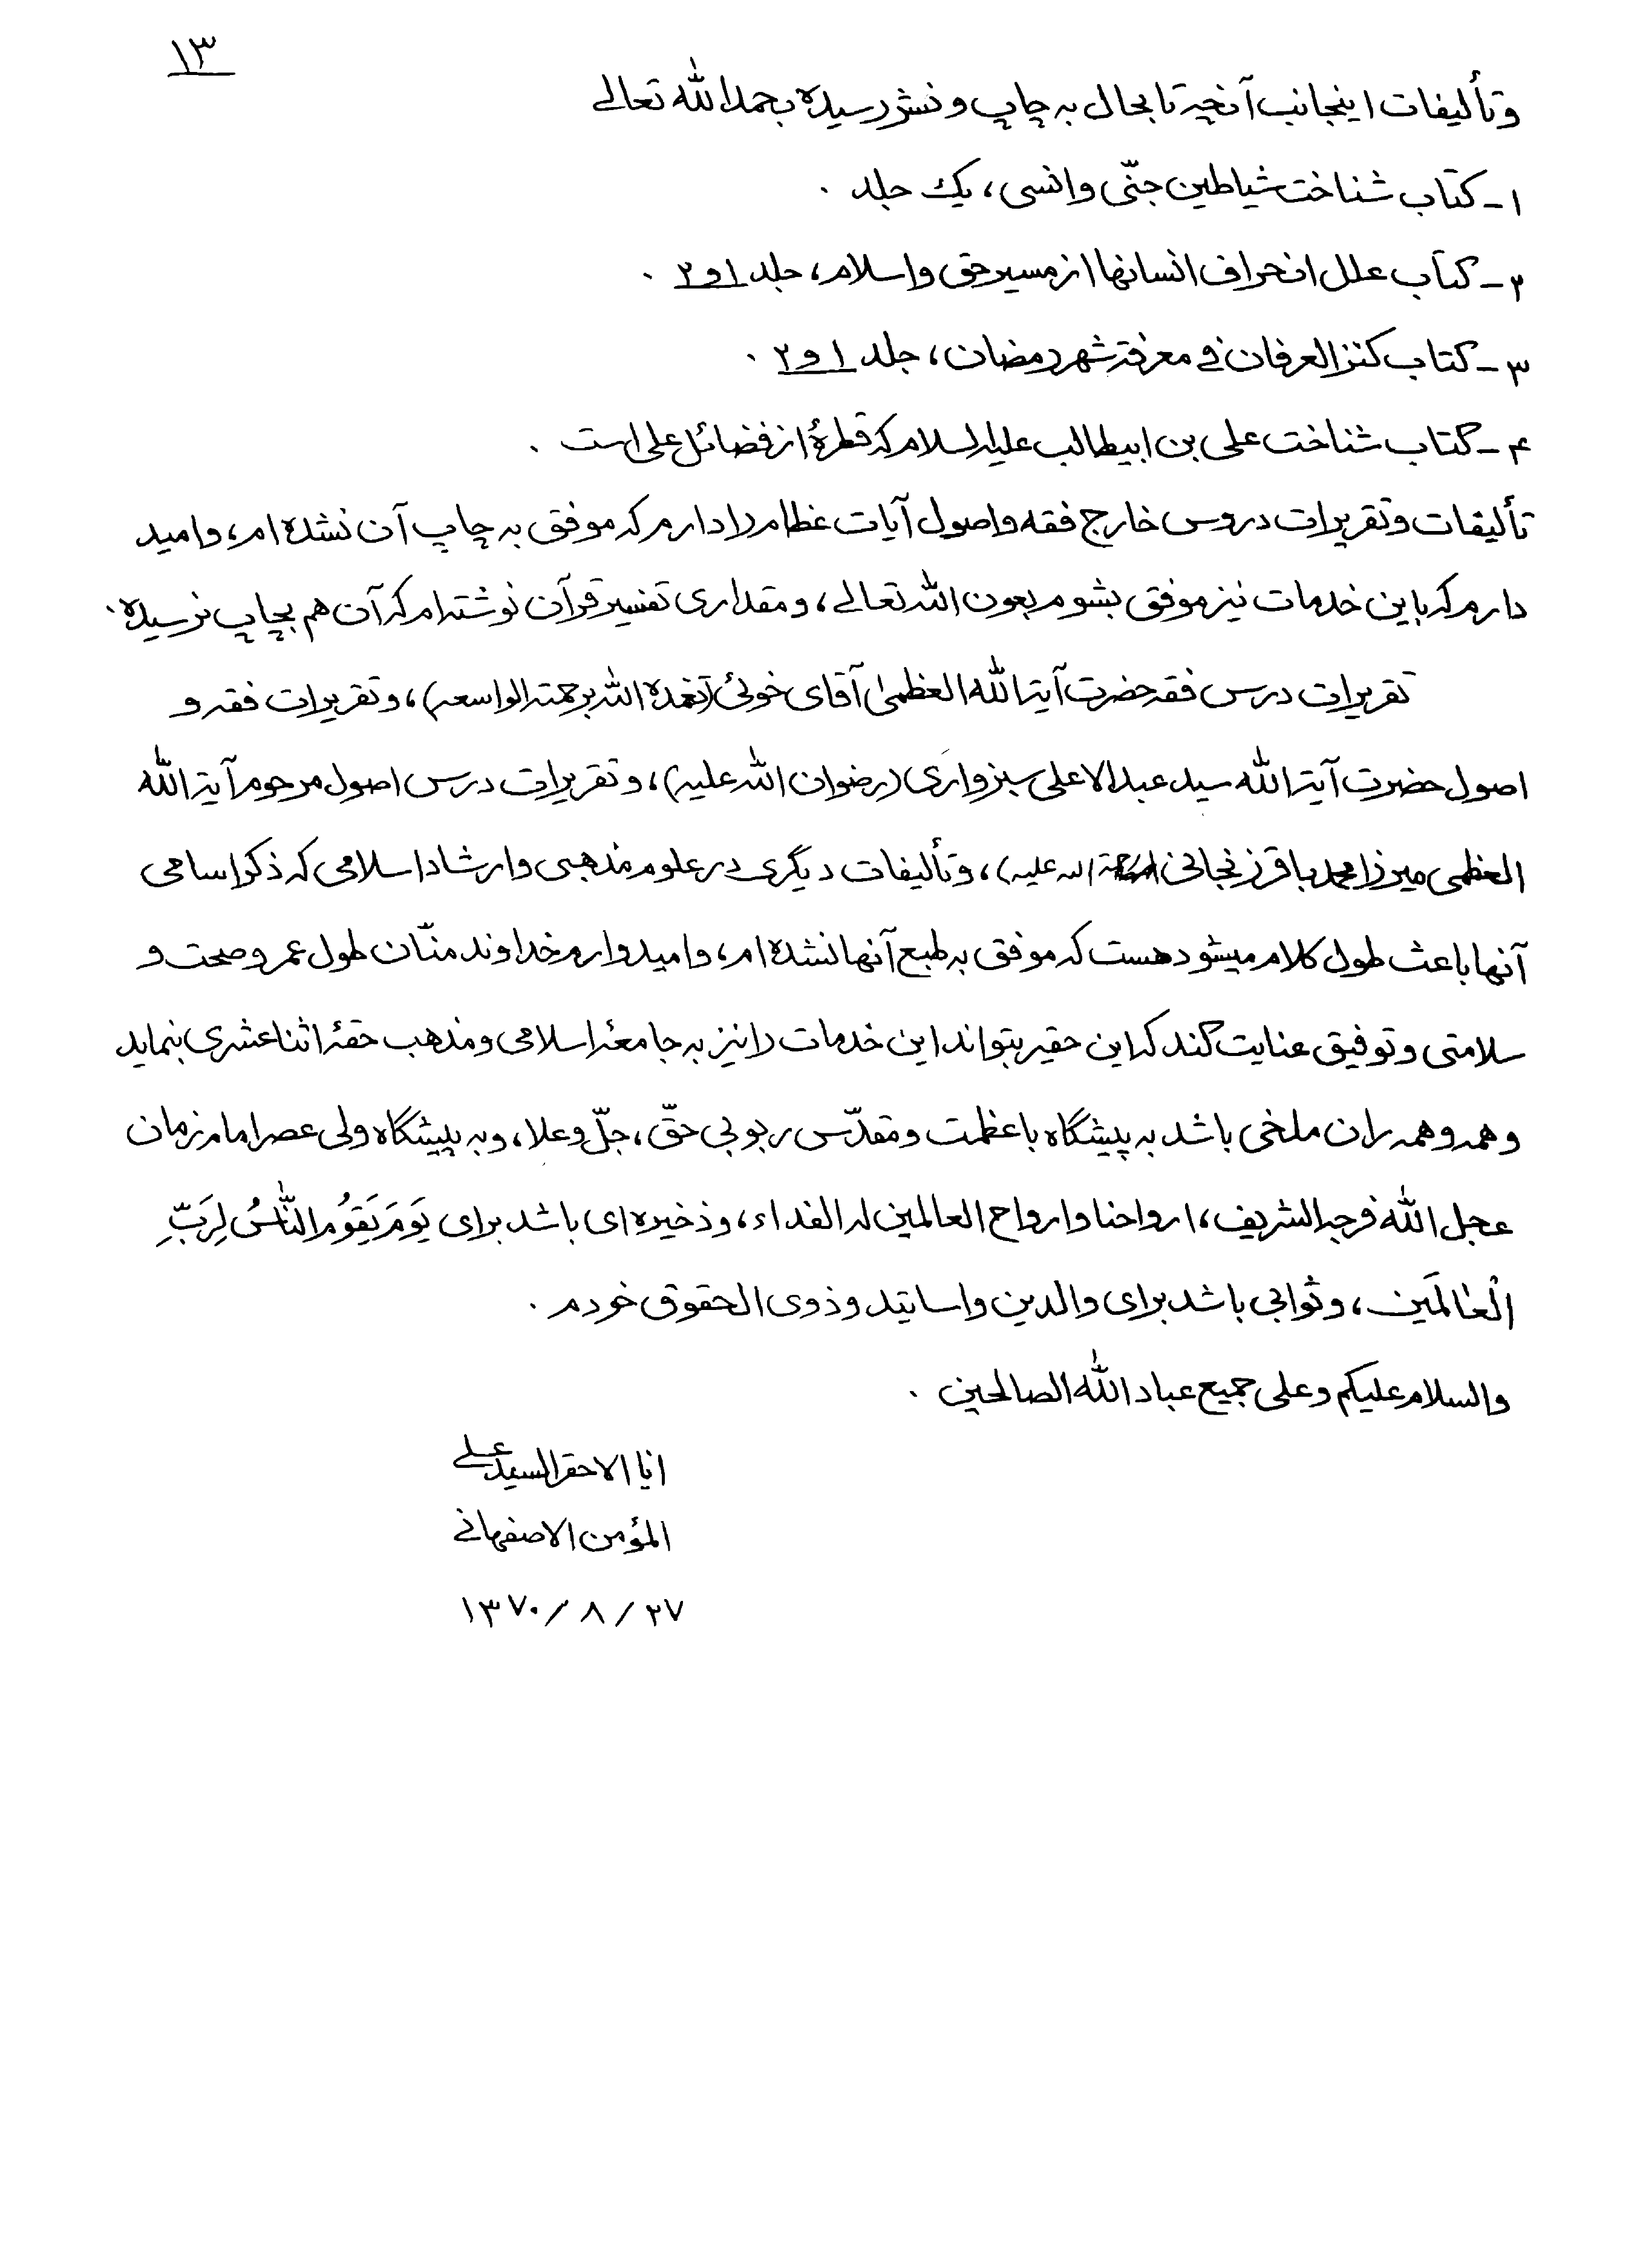 ۱۳
و تألیفات اینجانب آنچه تا بحال به چاپ و نشر رسیده بحمد الله تعالی
۱ - کتاب شناخت شیاطین جنّی و انسی، یک جلد .
۲ - کتاب علل انحراف انسانها از مسیر حق و اسلام، جلد ۱ و ۲ .
۳ - کتاب کنز العرفان فی معرفة شهر رمضان، جلد ۱ و ۲ .
۴ - کتاب شناخت علی بن ابیطالب علیه السلام که قطرهٔ از فضائل علی است .
تألیفات و تقریرات دروس خارج فقه و اصول آیات عظام را دارم که موفق به چاپ آن نشده ام، و امید
دارم که باین خدمات نیز موفق بشوم بعون الله تعالی، و مقداری تفسیر قرآن نوشته ام که آن هم بچاپ نرسیده .
تقریرات درس فقه حضرت آیة الله العظمیٰ آقای خوئی (تغمده الله برحمته الواسعه)، و تقریرات فقه و
اصول حضرت آیة الله سید عبد الاعلی سبزواری (رضوان الله علیه)، و تقریرات درس اصول مرحوم آیة الله
العظمی میرزا محمد باقر زنجانی (رحمة الله علیه)، و تألیفات دیگری در علوم مذهبی و ارشاد اسلامی که ذکر اسامی
آنها باعث طول کلام میشود هست که موفق به طبع آنها نشده ام، و امیدوارم خداوند منّان طول عمر و صحت و
سلامتی و توفیق عنایت کند که این حقیر بتواند این خدمات را نیز به جامعهٔ اسلامی و مذهب حقهٔ اثنا عشری بنماید
و همه و همه ران ملخی باشد به پیشگاه با عظمت و مقدّس ربوبی حقّ، جلّ و علا، و به پیشگاه ولی عصر امام زمان
عجل الله فرجه الشریف، ارواحنا و ارواح العالمین له الفداء، و ذخیره ای باشد برای یَومَ یَقُومُ النّاسُ لِرَبِّ
الْعٰالَمین، و ثوابی باشد برای والدین و اساتید و ذوی الحقوق خودم .
والسلام علیکم و علی جمیع عباد الله الصالحین .
انا الاحقر السید علی
المؤمن الاصفهانی
۲۷ / ۸ / ۱۳۷۰